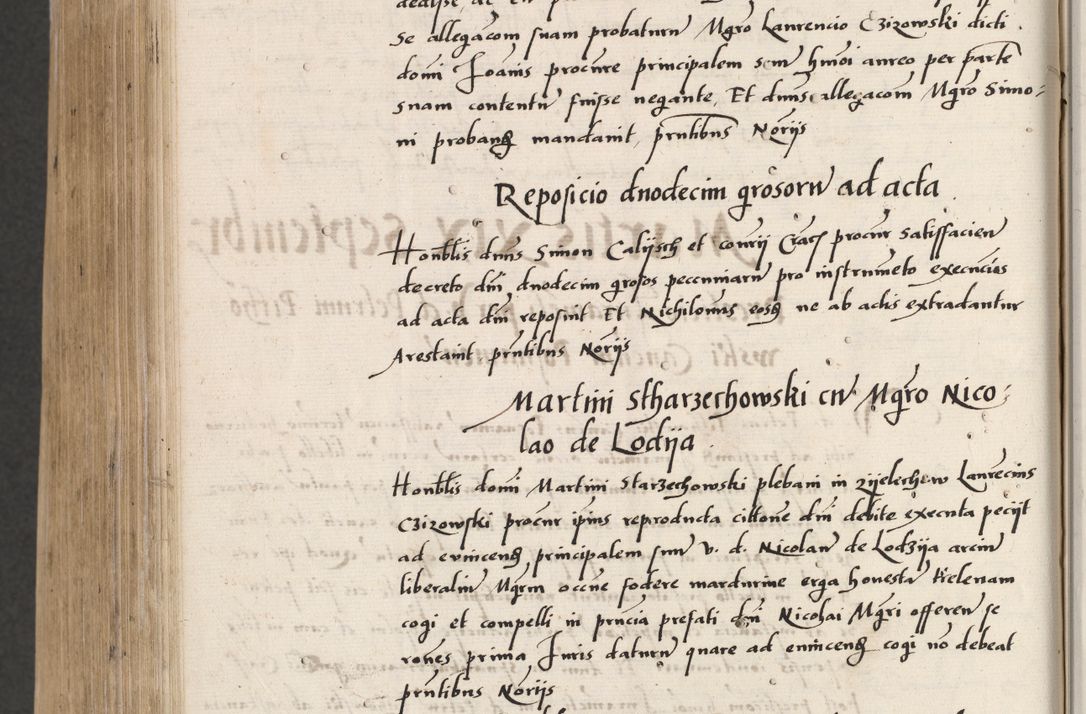 se allegacom suam probaturu Mgro Laurencio Czizowski dicti
domi Joanis procure principalem suu hmoi aureo per parte
suam contentu fuisse negante, Et dnus allegacom Mgro Simo-
ni probang mandauit, prntibus Norijs
Reposicio duodecim grosoru ad acta
Honblis dnus Simon Calijsch et conrij procur satisfacien
decreto dni duodecim grosos pecuniaru pro instrumeto execucois
ad acta dni reposuit Et Nichilomis eosq ne ab actis extradantur
Arestauit prntibus Norijs
Martini Stharzechowski cu Mgro Nico-
lao de Lodzija
Honblis domi Martini Starzechowski plebani in Laurecius
Czizowski procur ipius reproducta cittone dni debite executa pecijt
ad euinceng principalem suu v. d. Nicolau de Lodzija arciu
liberaliu Mgrm occne fodere mardurine erga honesta Helenam
cogi et compelli in pncia prefati dni Nicolai Mgri offeren se
rones prima Juris daturu quare ad euinceng cogi no debeat
prntibus Norijs